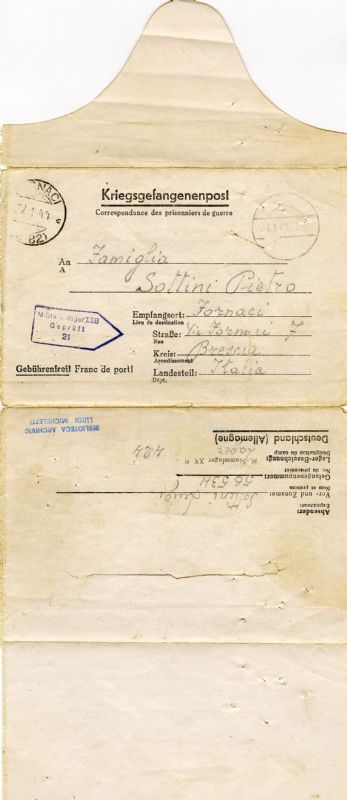 Kriegsgefangenenpost
Correspondance des prisonniers de guerre
An Famiglia
A
Sottini Pietro
Empfangsort: Fornaci
Lieu de destination
Straße: Via Fornaci 7
Rue
Kreis: Brescia
Arrondissement
Landesteil: Italia
Dépt.
Gebührenfrei! Franc de port!
Geprüft
21
BIBLIOTECA ARCHIVIO
LUIGI MICHELETTI
Absender:
Expéditeur:
Vor- und Zuname:
Nom et prénom
Sottini
Gefangenennummer:
No. du prisonnier
Lager-Bezeichnung:
Désignation du camp
M.-Stammlager XX B
Deutschland (Allemagne)